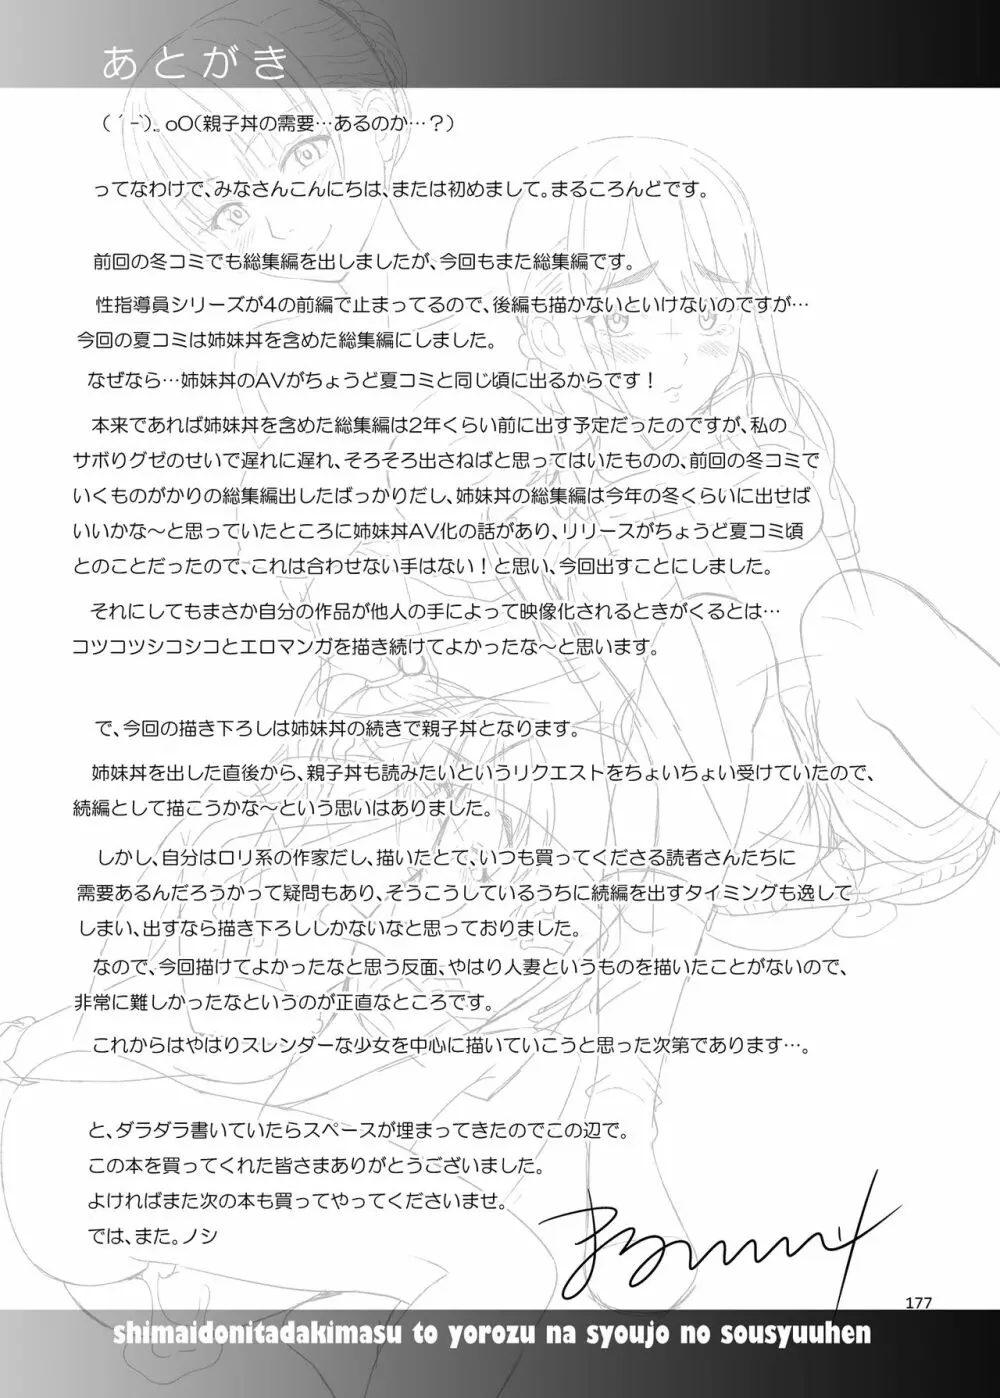 あとがき
（´-`）. oO（親子丼の需要…あるのか…？）
ってなわけで、みなさんこんにちは、または初めまして。まるころんどです。
前回の冬コミでも総集編を出しましたが、今回もまた総集編です。
性指導員シリーズが4の前編で止まってるので、後編も描かないといけないのですが…
今回の夏コミは姉妹丼を含めた総集編にしました。
なぜなら…姉妹丼のAVがちょうど夏コミと同じ頃に出るからです！
本来であれば姉妹丼を含めた総集編は2年くらい前に出す予定だったのですが、私の
サボりグゼのせいで遅れに遅れ、そろそろ出さねばと思ってはいたものの、前回の冬コミで
いくものがかりの総集編出したばっかりだし、姉妹丼の総集編は今年の冬くらいに出せば
いいかな～と思っていたところに姉妹丼AV化の話があり、リリースがちょうど夏コミ頃
とのことだったので、これは合わせない手はない！と思い、今回出すことにしました。
それにしてもまさか自分の作品が他人の手によって映像化されるときがくるとは…
コツコツシコシコとエロマンガを描き続けてよかったな～と思います。
で、今回の描き下ろしは姉妹丼の続きで親子丼となります。
姉妹丼を出した直後から、親子丼も読みたいというリクエストをちょいちょい受けていたので、
続編として描こうかな～という思いはありました。
しかし、自分はロリ系の作家だし、描いたとて、いつも買ってくださる読者さんたちに
需要あるんだろうかって疑問もあり、そうこうしているうちに続編を出すタイミングも逸して
しまい、出すなら描き下ろししかないなと思っておりました。
なので、今回描けてよかったなと思う反面、やはり人妻というものを描いたことがないので、
非常に難しかったなというのが正直なところです。
これからはやはりスレンダーな少女を中心に描いていこうと思った次第であります…。
と、ダラダラ書いていたらスペースが埋まってきたのでこの辺で。
この本を買ってくれた皆さまありがとうございました。
よければまた次の本も買ってやってくださいませ。
では、また。ノシ
177
shimaidonitadakimasu to yorozu na syoujo no sousyuuhen